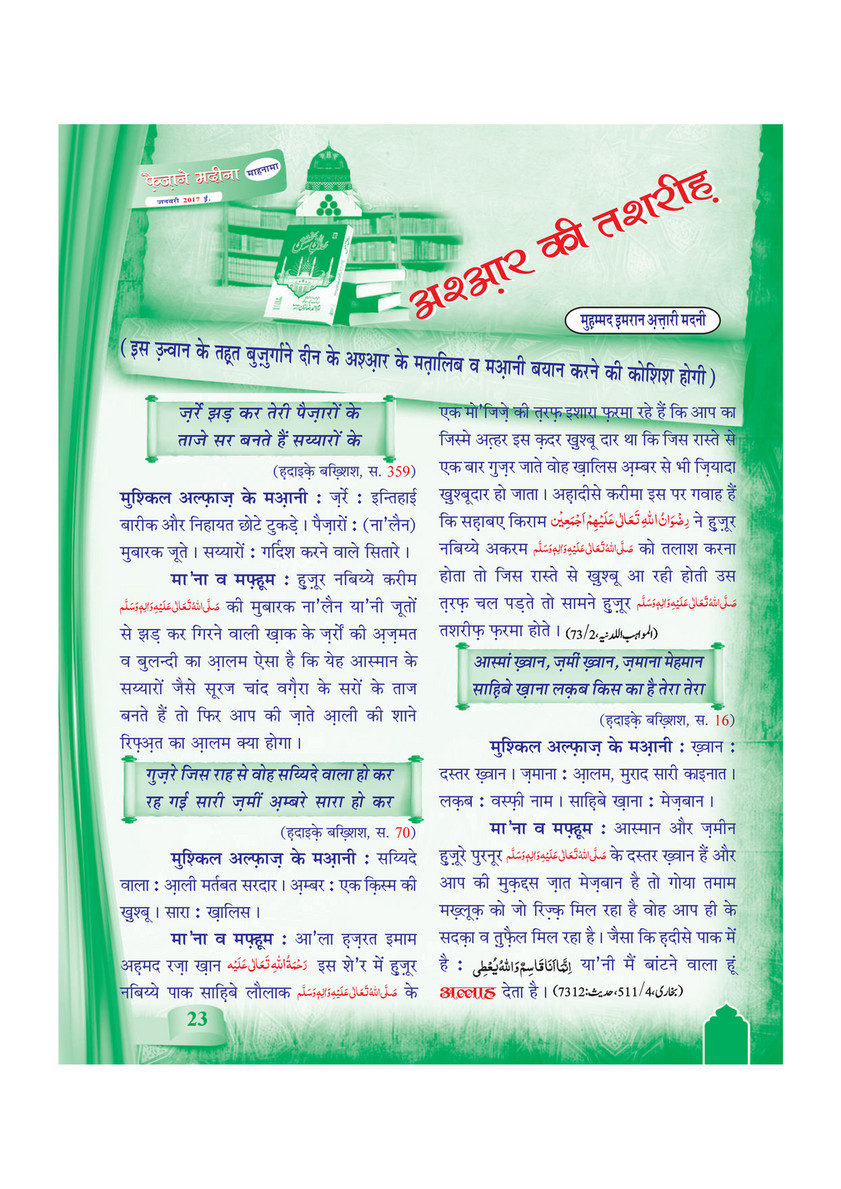 फ़ैज़ाने मदीना माहनामा
जनवरी 2017 ई.
अश्आ़र की तशरीह़
मुह़म्मद इमरान अ़त़्त़ारी मदनी
( इस उ़न्वान के तह़्त बुज़ुर्गाने दीन के अश्आ़र के मत़ालिब व मआ़नी बयान करने की कोशिश होगी )
ज़र्रे झड़ कर तेरी पैज़ारों के
ताजे सर बनते हैं सय्यारों के
(ह़दाइके़ बख़्शिश, स. 359)
मुश्किल अल्फ़ाज़ के मआ़नी : ज़र्रे : इन्तिहाई
बारीक और निहायत छोटे टुकड़े। पैज़ारों : (ना’लैन)
मुबारक जूते। सय्यारों : गर्दिश करने वाले सितारे।
मा’ना व मफ़्हूम : हुज़ूर नबिय्ये करीम
صَلَّى اللهُ تَعَالٰى عَلَيْهِ وَاٰلِهٖ وَسَلَّم की मुबारक ना’लैन या’नी जूतों
से झड़ कर गिरने वाली ख़ाक के ज़र्रों की अ़ज़मत
व बुलन्दी का आ़लम ऐसा है कि येह आस्मान के
सय्यारों जैसे सूरज चांद वग़ैरा के सरों के ताज
बनते हैं तो फिर आप की ज़ाते आ़ली की शाने
रिफ़्अ़त का आ़लम क्या होगा।
गुज़रे जिस राह से वोह सय्यिदे वाला हो कर
रह गई सारी ज़मीं अ़म्बरे सारा हो कर
(ह़दाइके़ बख़्शिश, स. 70)
मुश्किल अल्फ़ाज़ के मआ़नी : सय्यिदे
वाला : आ़ली मर्तबत सरदार। अ़म्बर : एक क़िस्म की
खुश्बू। सारा : ख़ालिस।
मा’ना व मफ़्हूम : आ’ला ह़ज़रत इमाम
अह़मद रज़ा ख़ान رَحْمَةُ اللهِ تَعَالٰى عَلَيْه इस शे’र में हुज़ूर
नबिय्ये पाक साहिबे लौलाक صَلَّى اللهُ تَعَالٰى عَلَيْهِ وَاٰلِهٖ وَسَلَّم के
23
एक मो’जिज़े की त़रफ़ इशारा फ़रमा रहे हैं कि आप का
जिस्मे अत़्हर इस क़दर खुश्बू दार था कि जिस रास्ते से
एक बार गुज़र जाते वोह ख़ालिस अ़म्बर से भी ज़ियादा
खुश्बूदार हो जाता। अह़ादीसे करीमा इस पर गवाह हैं
कि सह़ाबए किराम رِضْوَانُ اللهِ تَعَالٰى عَلَيْهِمْ اَجْمَعِيْن ने हुज़ूर
नबिय्ये अकरम صَلَّى اللهُ تَعَالٰى عَلَيْهِ وَاٰلِهٖ وَسَلَّم को तलाश करना
होता तो जिस रास्ते से खुश्बू आ रही होती उस
त़रफ़ चल पड़ते तो सामने हुज़ूर صَلَّى اللهُ تَعَالٰى عَلَيْهِ وَاٰلِهٖ وَسَلَّم
तशरीफ़ फ़रमा होते। (المواہب اللدنیہ، 73/2)
आस्मां ख़्वान, ज़मीं ख़्वान, ज़माना मेहमान
साह़िबे ख़ाना लक़ब किस का है तेरा तेरा
(ह़दाइके़ बख़्शिश, स. 16)
मुश्किल अल्फ़ाज़ के मआ़नी : ख़्वान :
दस्तर ख़्वान। ज़माना : आ़लम, मुराद सारी काइनात।
लक़ब : वस्फ़ी नाम। साह़िबे ख़ाना : मेज़बान।
मा’ना व मफ़्हूम : आस्मान और ज़मीन
हुज़ूरे पुरनूर صَلَّى اللهُ تَعَالٰى عَلَيْهِ وَاٰلِهٖ وَسَلَّم के दस्तर ख़्वान हैं और
आप की मुक़द्दस ज़ात मेज़बान है तो गोया तमाम
मख़्लूक़ को जो रिज़्क़ मिल रहा है वोह आप ही के
सदक़ा व तुफ़ैल मिल रहा है। जैसा कि ह़दीसे पाक में
है : اِنَّمَا اَنَا قَاسِمٌ وَاللهُ يُعْطِى या’नी मैं बांटने वाला हूं
अल्लाह देता है। (بخاری، 511/4، حدیث: 7312)